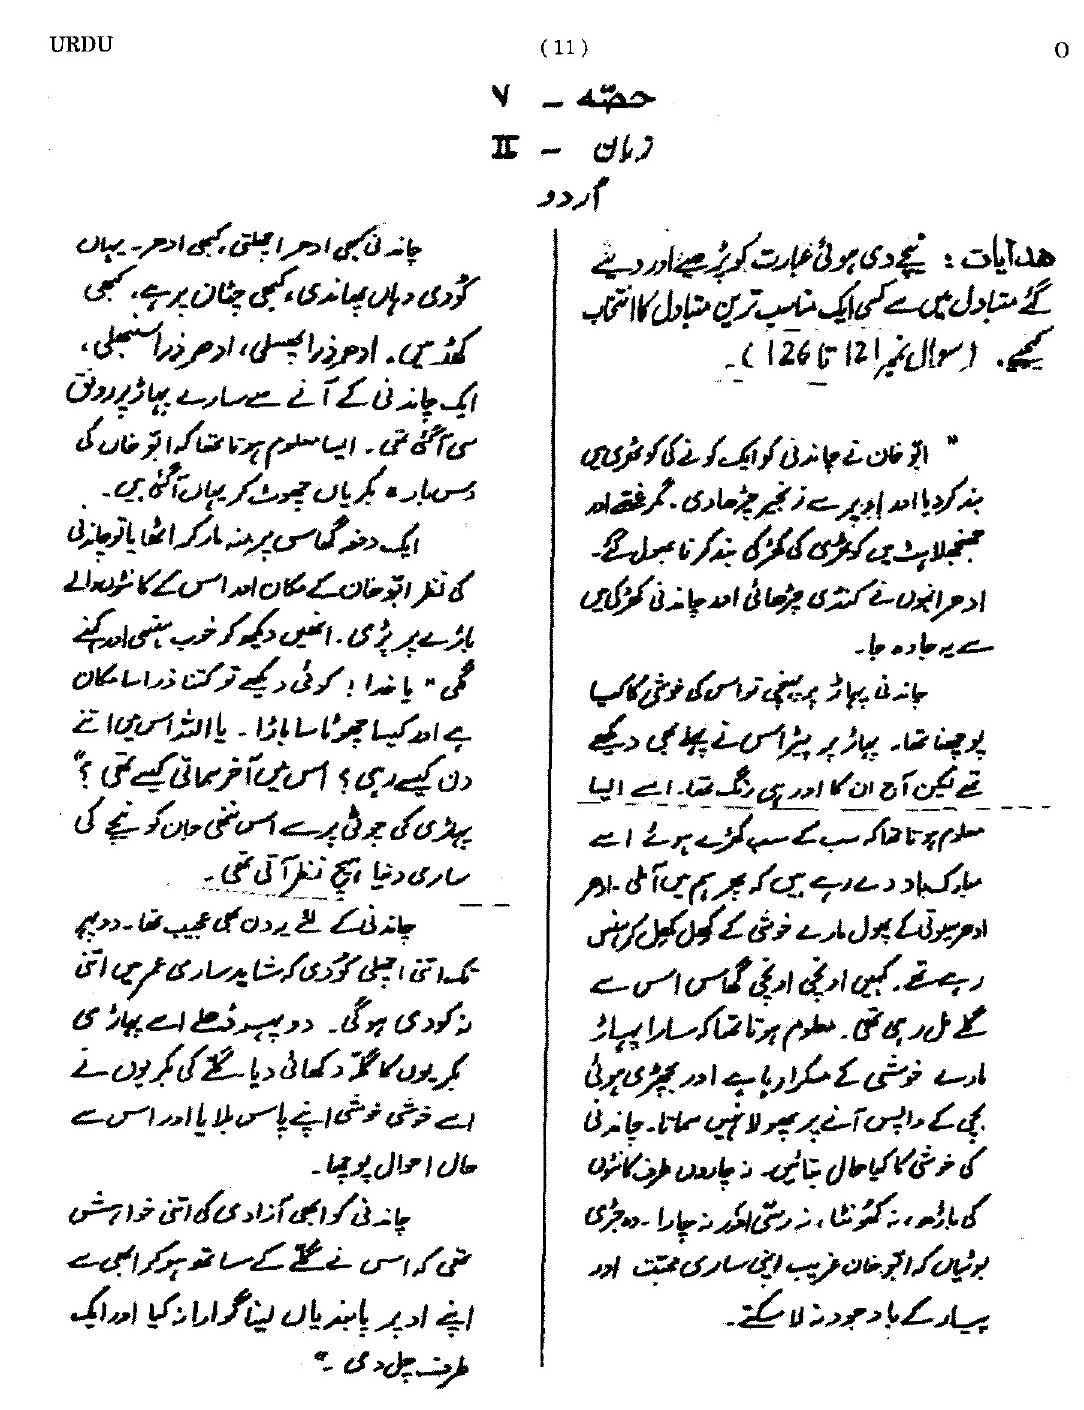 URDU
(11)
O
حصّہ - ۷
زبان - II
اُردو
ھدآیات : نیچے دی ہوئی عبارت کو پڑھیے اور دیئے
گئے متبادل میں سے کسی ایک مناسب ترین متبادل کا انتخاب
کیجیے۔ (سوال نمبر 121 تا 126)۔
" ابّو خان نے چاندنی کو ایک کونے کی کوٹھری میں
بند کر دیا اور اوپر سے زنجیر چڑھا دی۔ مگر غصّے اور
جھنجھلاہٹ میں کوٹھری کی کھڑکی بند کرنا بھول گئے۔
ادھر انہوں نے کنڈی چڑھائی اور چاندنی کھڑکی میں
سے یہ جا وہ جا۔
چاندنی پہاڑ پر پہنچی تو اس کی خوشی کا کیا
پوچھنا تھا۔ پہاڑ پر پیڑ اس نے پہلے بھی دیکھے
تھے لیکن آج ان کا اور ہی رنگ تھا۔ اسے ایسا
معلوم ہوتا تھا کہ سب کے سب کھڑے ہوئے اسے
مبارک باد دے رہے ہیں کہ پھر ہم میں آ ملی۔ ادھر
ادھر سیوتی کے پھول مارے خوشی کے کھِل کھِل کر ہنس
رہے تھے۔ کہیں اونچی اونچی گھاس اس سے
گلے مل رہی تھی۔ معلوم ہوتا تھا کہ سارا پہاڑ
مارے خوشی کے مسکرا رہا ہے اور بچھڑی ہوئی
بچی کے واپس آنے پر پھولا نہیں سماتا۔ چاندنی
کی خوشی کا کیا حال بتائیں۔ نہ چاروں طرف کانٹوں
کی باڑھ، نہ کھونٹا، نہ رسّی اور نہ چارا۔ وہ جڑی
بوٹیاں کہ ابّو خان غریب اپنی ساری محبّت اور
پیار کے باوجود نہ لا سکتے۔
چاندنی کبھی ادھر اچھلتی، کبھی ادھر۔ یہاں
کوُدی وہاں پھاندی، کبھی چٹان پر ہے، کبھی
کھڈ میں۔ ادھر ذرا پھسلی، ادھر ذرا سنبھلی،
ایک چاندنی کے آنے سے سارے پہاڑ پر رونق
سی آ گئی تھی۔ ایسا معلوم ہوتا تھا کہ ابّو خان کی
دس بارہ بکریاں چھوٹ کر یہاں آ گئی ہیں۔
ایک دفعہ گھاس پر منہ مار کر اٹھایا تو چاندنی
کی نظر ابّو خان کے مکان اور اس کے کانٹوں والے
باڑے پر پڑی۔ انھیں دیکھ کر خوب ہنسی اور کہنے
لگی " یا خدا! کوئی دیکھے تو کتنا ذرا سا مکان
ہے اور کیسا چھوٹا سا باڑا۔ یا اللہ اس میں اتنے
دن کیسے رہی؟ اس میں آخر سمائی کیسے تھی؟"
پہاڑی کی چوٹی پر سے اس ننھی جان کو نیچے کی
ساری دنیا ہیچ نظر آتی تھی۔
چاندنی کے لئے یہ دن بھی عجیب تھا۔ دوپہر
تک اتنی اچھلی کوُدی کہ شاید ساری عمر میں اتنی
نہ کودی ہوگی۔ دوپہر ڈھلے اسے پہاڑی
بکریوں کا گلّہ دکھائی دیا گلّے کی بکریوں نے
اسے خوشی خوشی اپنے پاس بلایا اور اس سے
حال احوال پوچھا۔
چاندنی کو ابھی آزادی کی اتنی خواہش
تھی کہ اس نے گلّے کے ساتھ ہو کر ابھی سے
اپنے اوپر پابندیاں لینا گوارا نہ کیا اور ایک
طرف چل دی۔"